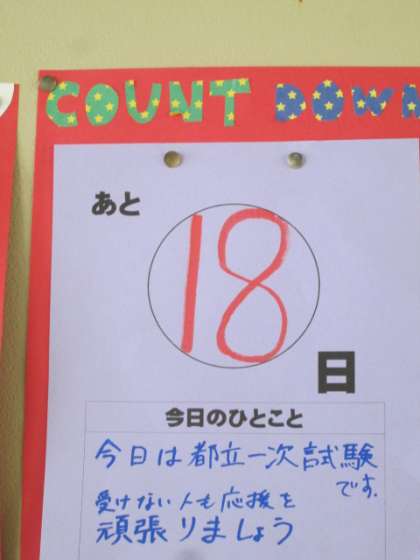 COUNT DOWN
あと
18
日
今日のひとこと
今日は都立一次試験
です.
受けない人も応援を
頑張りましょう